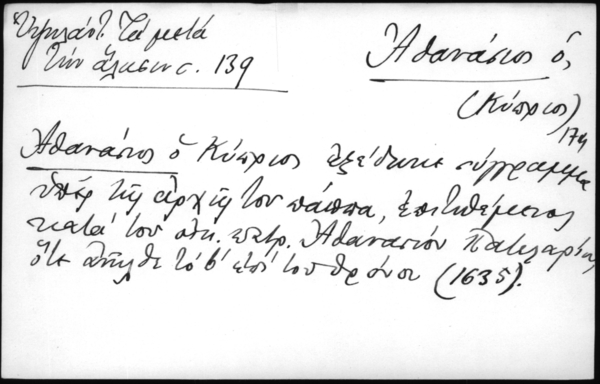 Ὑψηλάντ. Τὰ μετὰ
τὴν ἅλωσιν σ. 139
Ἀθανάσιος ὁ,
(Κύπριος)
Ἀθανάσιος ὁ Κύπριος ἐξέδωκε σύγγραμμα
ὑπὲρ τῆς ἀρχῆς τοῦ πάππα, ἐπιτιθέμενος
κατὰ τοῦ οἰκ. πατρ. Ἀθανασίου Πατελάρου,
ὅτε ἀνῆλθε τὸ β' ἐπὶ τοῦ θρόνου (1635).